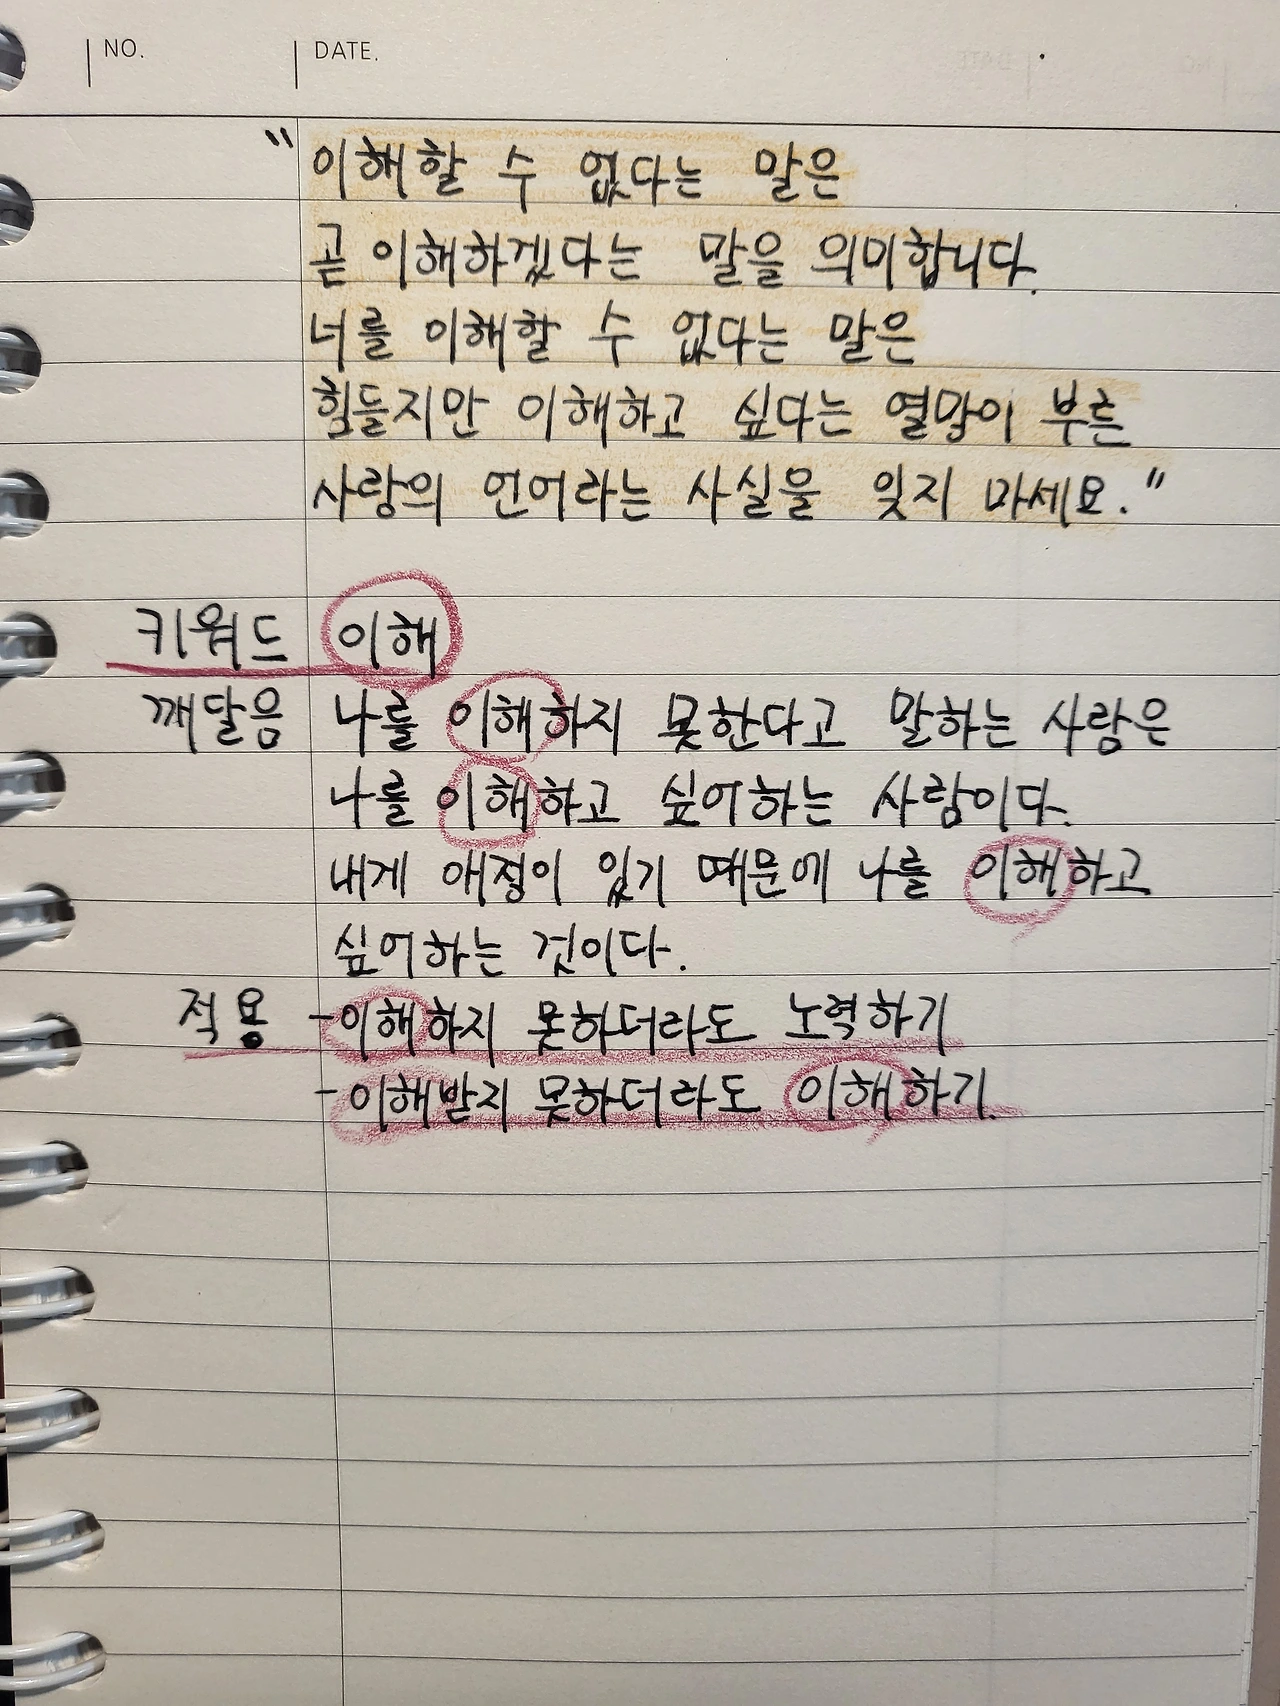 NO. DATE.
"이해할 수 없다는 말은
곧 이해하겠다는 말을 의미합니다.
너를 이해할 수 없다는 말은
힘들지만 이해하고 싶다는 열망이 부른
사랑의 언어라는 사실을 잊지 마세요."
키워드 이해
깨달음 나를 이해하지 못한다고 말하는 사람은
나를 이해하고 싶어하는 사람이다.
내게 애정이 있기 때문에 나를 이해하고
싶어하는 것이다.
적용 -이해하지 못하더라도 노력하기
-이해받지 못하더라도 이해하기.